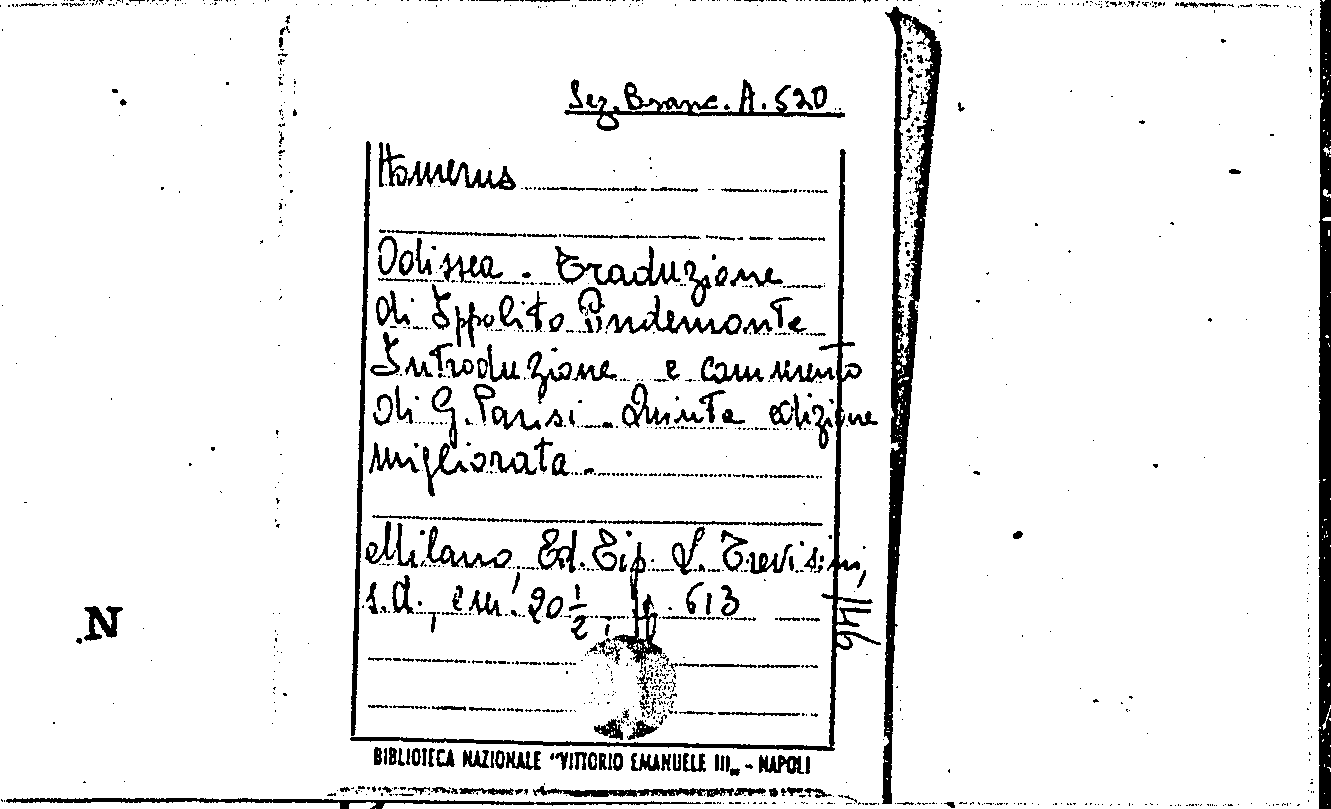 Sez. Branc. A. 520
Homerus
Odissea. Traduzione
di Ippolito Pindemonte
Introduzione e commento
di G. Parisi. Quinta edizione
migliorata.
Milano, Ed. Tip. L. Trevisini,
s.d., cm. 20 1/2, pp. 613
N
BIBLIOTECA NAZIONALE "VITTORIO EMANUELE III„ - NAPOLI